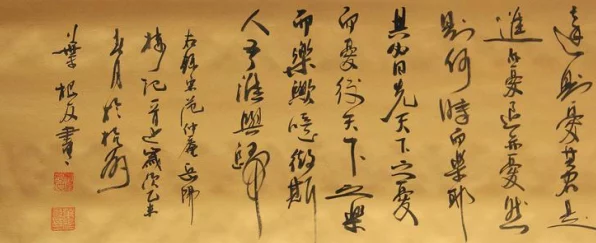 遠則憂其君是
進亦憂退亦憂然
則何時而樂耶
其必曰先天下之憂
而憂後天下之樂
而樂歟噫微斯
人吾誰與歸
右錄宋范仲庵岳陽
樓記一首歲次乙未
月於
葉根友書